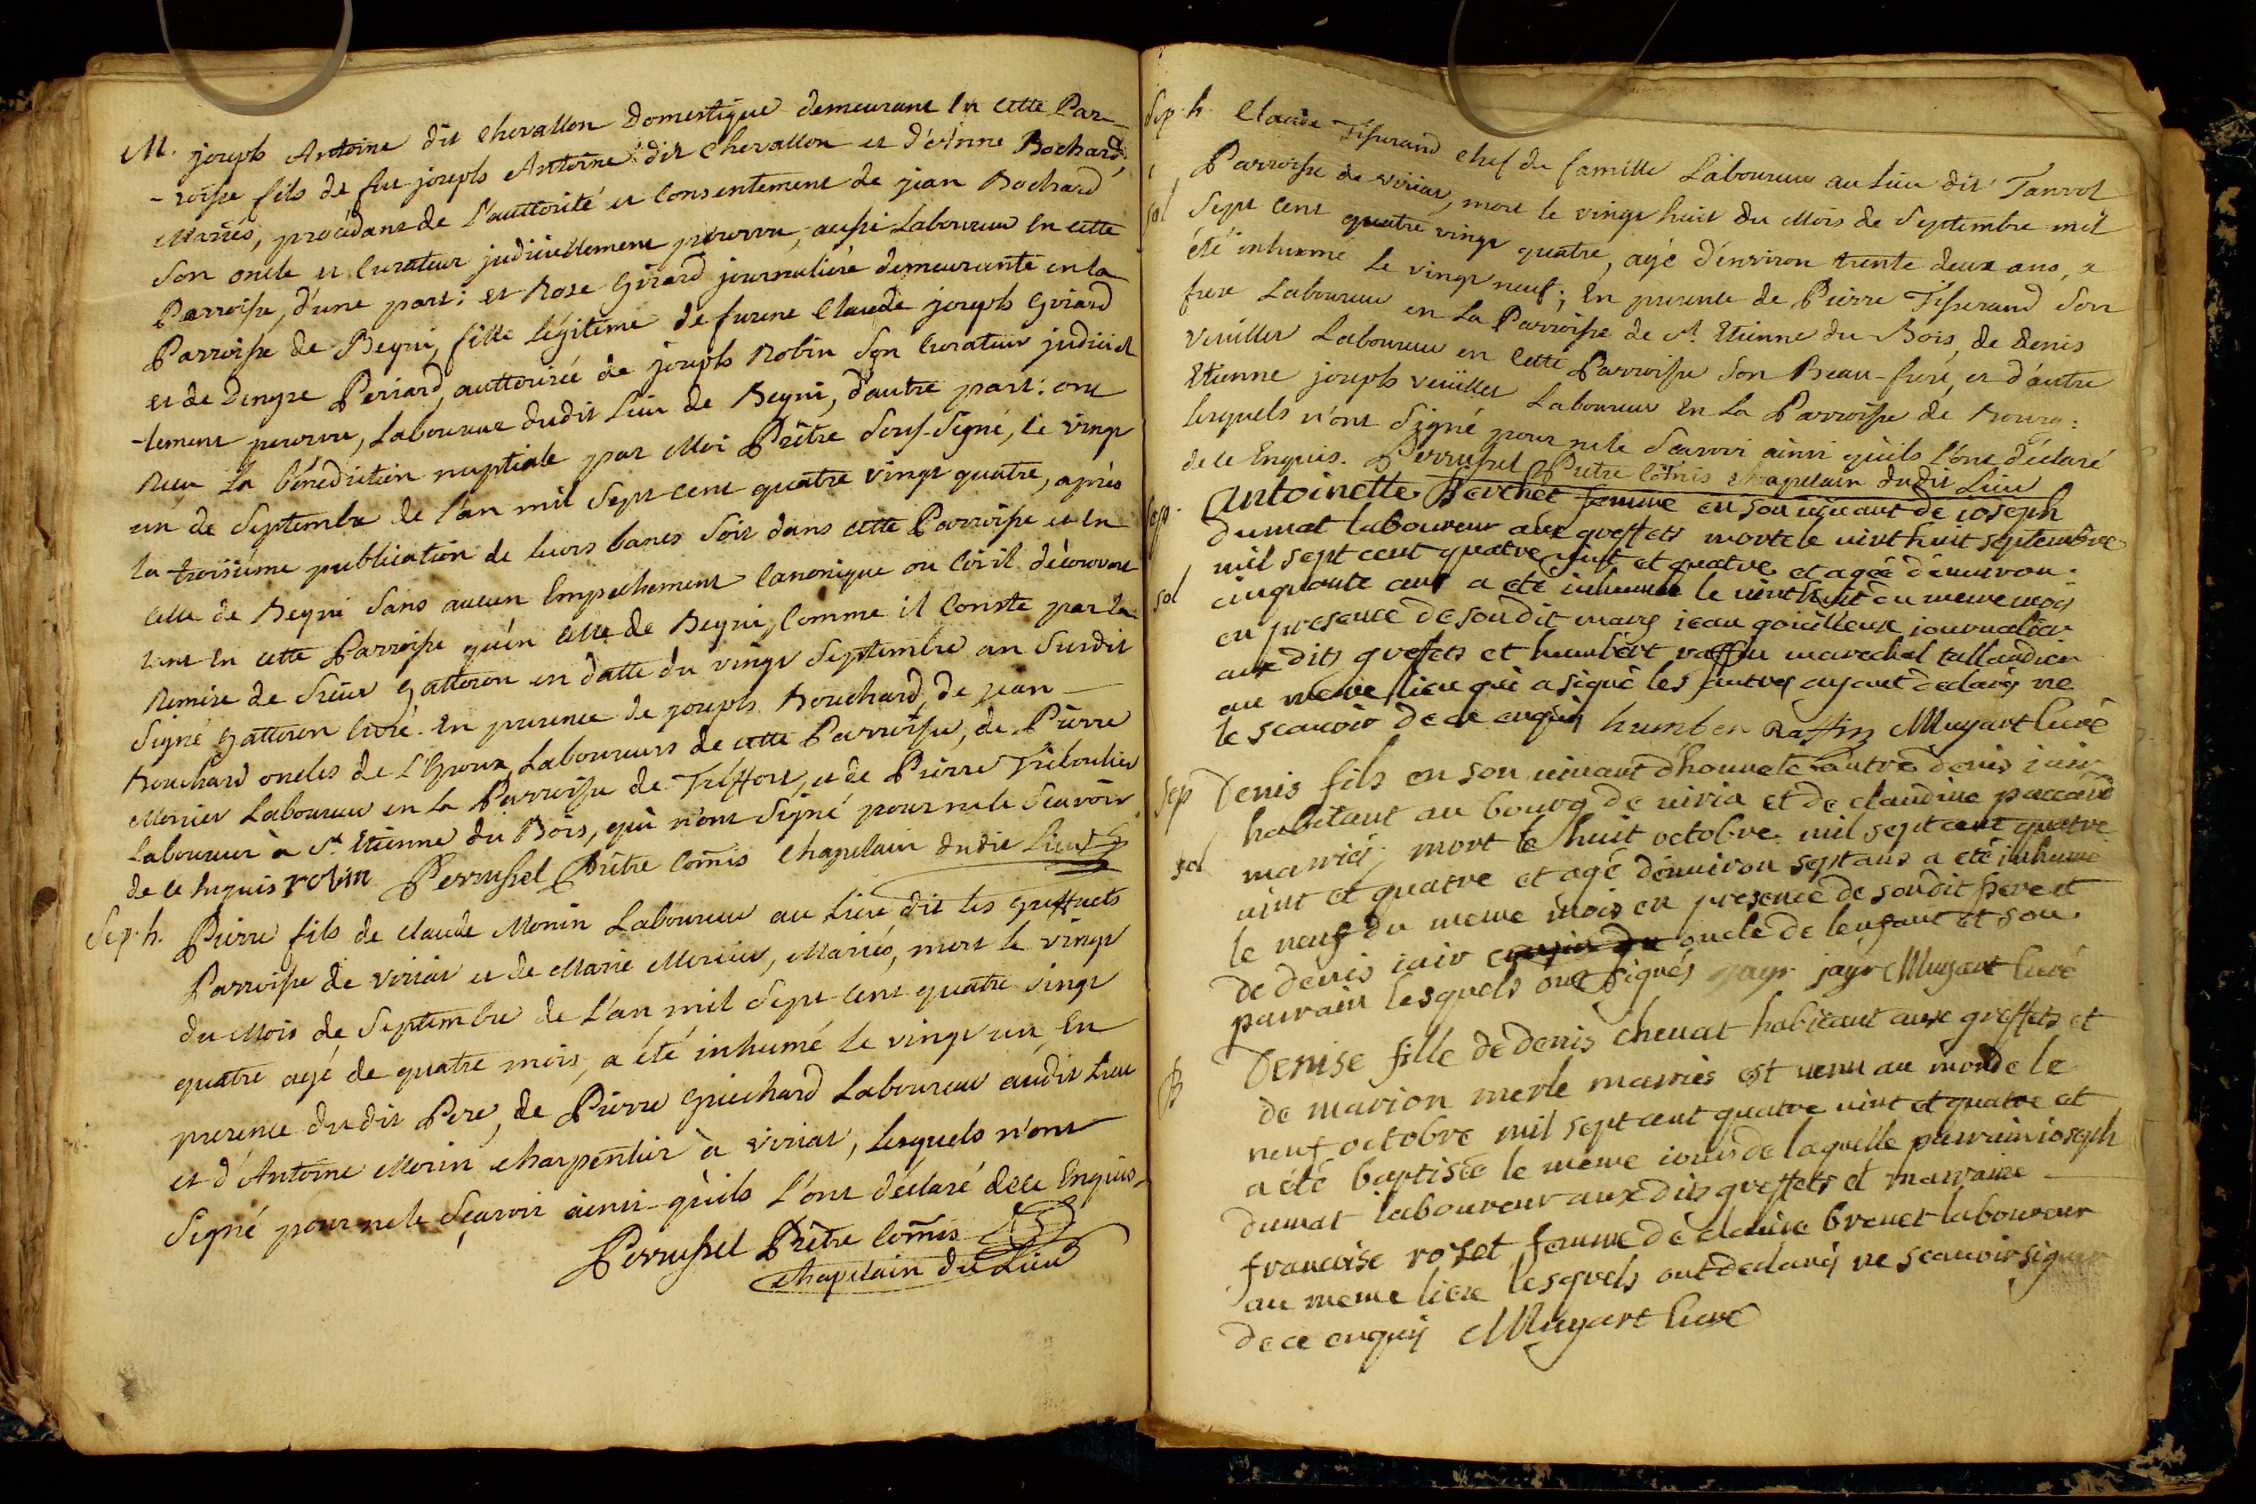 M. joseph Antoine dit Chevallon Domestique demeurant En Cette Par-
-roisse fils de feu joseph Antoine dit Chevallon et d'étnne Bochard,
Mariés, procédant de L'authorité et Consentement de jean Bochard
Son oncle et Curateur judiciellement pourvu, aussi Laboureur En cette
Parroisse, d'une part; et Rose Girard journaliére demeurante en la
Parroisse de Beyni, fille légitime de furent Claude joseph Girard
et de Denyse Periard, authorisée de joseph Robin Son Curateur judiciel
-lement pourvu, Laboureur dudit Lieu de Beyni, d'autre part: ont
Reçu La bénédiction nuptiale par Moi Prêtre Sous-Signé, Le vingt
un de Septembre de L'an mil Sept Cent quatre vingt quatre, après
La troisiéme publication de leurs bancs Soit dans cette Parroisse et En
Celle de Beyni Sans aucun Empechement Canonique ou Civil découvert
tant En cette Parroisse qu'en Celle de Beyni, Comme il Conste par la
Remise de Sieur Gatteron en datte du vingt Septembre an Susdit
Signé Gatteron Curé. En presence de joseph Bouchard, de jean
Bouchard oncles de L'Epoux, Laboureurs de cette Parroisse, de Pierre
Monier Laboureur en La Parroisse de Tréffort, et de Pierre Tréboulier
Laboureur à St. Etienne du Bois, qui n'ont Signé pour ne le Sçavoir
de ce Enquis robin Perrussel Prêtre Comis Chapelain dudit Lieu
Sep.h. Pierre fils de Claude Monin Laboureur au Lieu dit les Greffuets
Parroisse de Viriat et de Marie Mercier, Mariés, mort le vingt
du Mois de Septembre de L'an mil Sept Cent quatre vingt
quatre agé de quatre mois, a été inhumé Le vingt un, En
presence dudit Pere, de Pierre Guichard Laboureur audit Lieu
et d'Antoine Morin Charpentier à Viriat, lesquels n'ont
Signé pour ne le Sçavoir ainsi qu'ils L'ont déclaré de ce Enquis.
Perrussel Prêtre Comis
Chapelain du Lieu
Sep.h. Claude Tisserand chef de famille Laboureur au Lieu dit Tanvol
Parroisse de Viriat, mort le vingt huit du Mois de Septembre mil
sol Sept Cent quatre vingt quatre, agé d'environ trente deux ans, a
été inhumé Le vingt neuf; En presence de Pierre Tisserand Son
frere Laboureur en La Parroisse de St. Etienne du Bois, de Denis
Veuillet Laboureur en Cette Parroisse Son Beau-frere, et d'autre
Etienne joseph Veuillet Laboureur En La Parroisse de Bourg:
lesquels n'ont Signé pour ne le Sçavoir ainsi qu'ils L'ont déclaré
de ce Enquis. Perrussel Prêtre Comis Chapelain dudit Lieu
Sep. Antoinette Bevenet femme en son vivant de ioseph
dumat laboureur aux greffets morte le vint huit septembre
mil sept cent quatre vint et quatre et agée d'environ
sol cinquante ans a eté inhumée le vint huit du meme mois
en presence de son dit mary iean goicilleux iournalier
aux dits greffets et humbert raffin marechal tallandier
au meme lieu qui a signé les autres ayant declaré ne
le scavoir de ce enquis humber Raffin Muyart Curé
Sep Denis fils en son vivant d'hounete autre denis iair
habitant au bourg de viria et de claudine paccard
sol mariés mort le huit octobre mil sept cent quatre
vint et quatre et agé d'environ sept ans a eté inhumé
le neuf du meme mois en presence de son dit frere et
de denis iair oncle de l'enfant et son
parrain lesquels ont signés jayr jayr Muyart Curé
B Denise fille de denis chevat habitant aux greffets et
de marion merle mariés est venu au monde le
neuf octobre mil sept cent quatre vint et quatre et
a été baptisée le meme iour de laquelle parrain ioseph
dumat laboureur aux dits greffets et marraine
francoise rozet femme de claude brevet laboureur
au meme lieu lesquels ont declaré ne scavoir signer
de ce enquis Muyart Curé